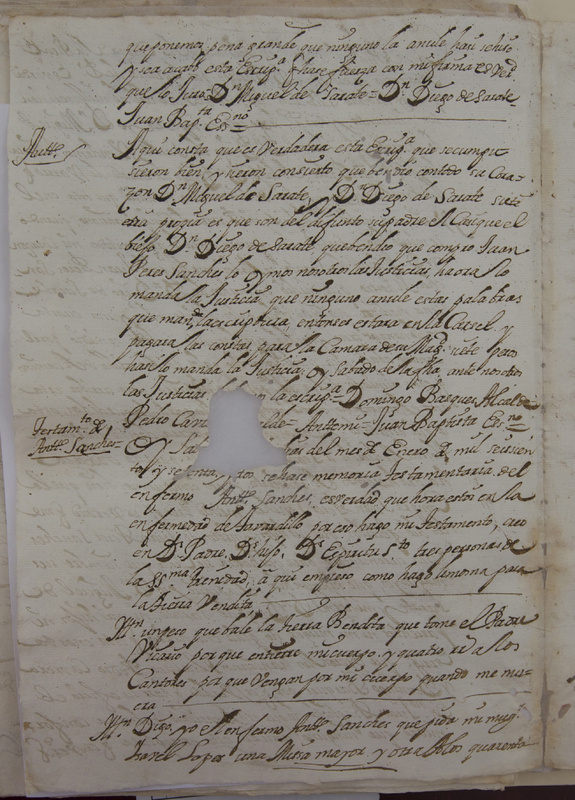 que ponemos pena grande que ninguno la anule hasi se hiso
y sea acavª esta Escripª Fuere fuerza con mi firma es Verd
que lo Juro Dn Miguel de Sarate = Dn Diego de Sarate
Juan Bapta Esno
Auttº
Aqui consta que es Verdadera esta Escripª que se cumpu
sieron bien, y fueron consierto que bendio contodo su Cora-
zon Dn Miguel de Sarate, y Dn Diego de Sarate su tie
rra propia es que son del difunto su padre el Casique el
biejo Dn Diego de Sarate que bendio que compro Juan
Peres Sanches lo Oymos nosotros las Justicias, haora lo
manda la Justicia, que ninguno anule estas palabras
que manda la escriptura, entonces estara en la Carsel y
pagara las costas para la Camara de su Magd siete pesos
hasi lo manda la Justicia, Oy Sabado de la fha, ante nosotros
las Justicias la escripª Domingo Basques Alcalde
Pedro Alcalde = Anttemi = Juan Baptista Esno
Testamto de Anttº Sanches =
Oy dias del mes de Enero de mil seissien
tos y setenta, y dos, se hase memoria testamentaria del
enfermo Anttº Sanches, es verdad que hora estoi en la
enfermedad de tavardillo por eso hago mi testamento, creo
en Ds Padre, Ds hijo, Ds Espiritu Sto tres personas de
la SSma trenidad, a qui empieso como hago limosna para
la tierra Vendita
Ittn un peso que bale la tierra Bendita que tome el Padre
Vicario por que entierre mi cuerpo y quatro rs a los
Cantores por que Vengan por mi cuerpo quando me mu-
era
Ittn Digo yo el enfermo Anttº Sanches que pida mi muger
Isavel Lopes una Missa mayor y otra a los quarenta